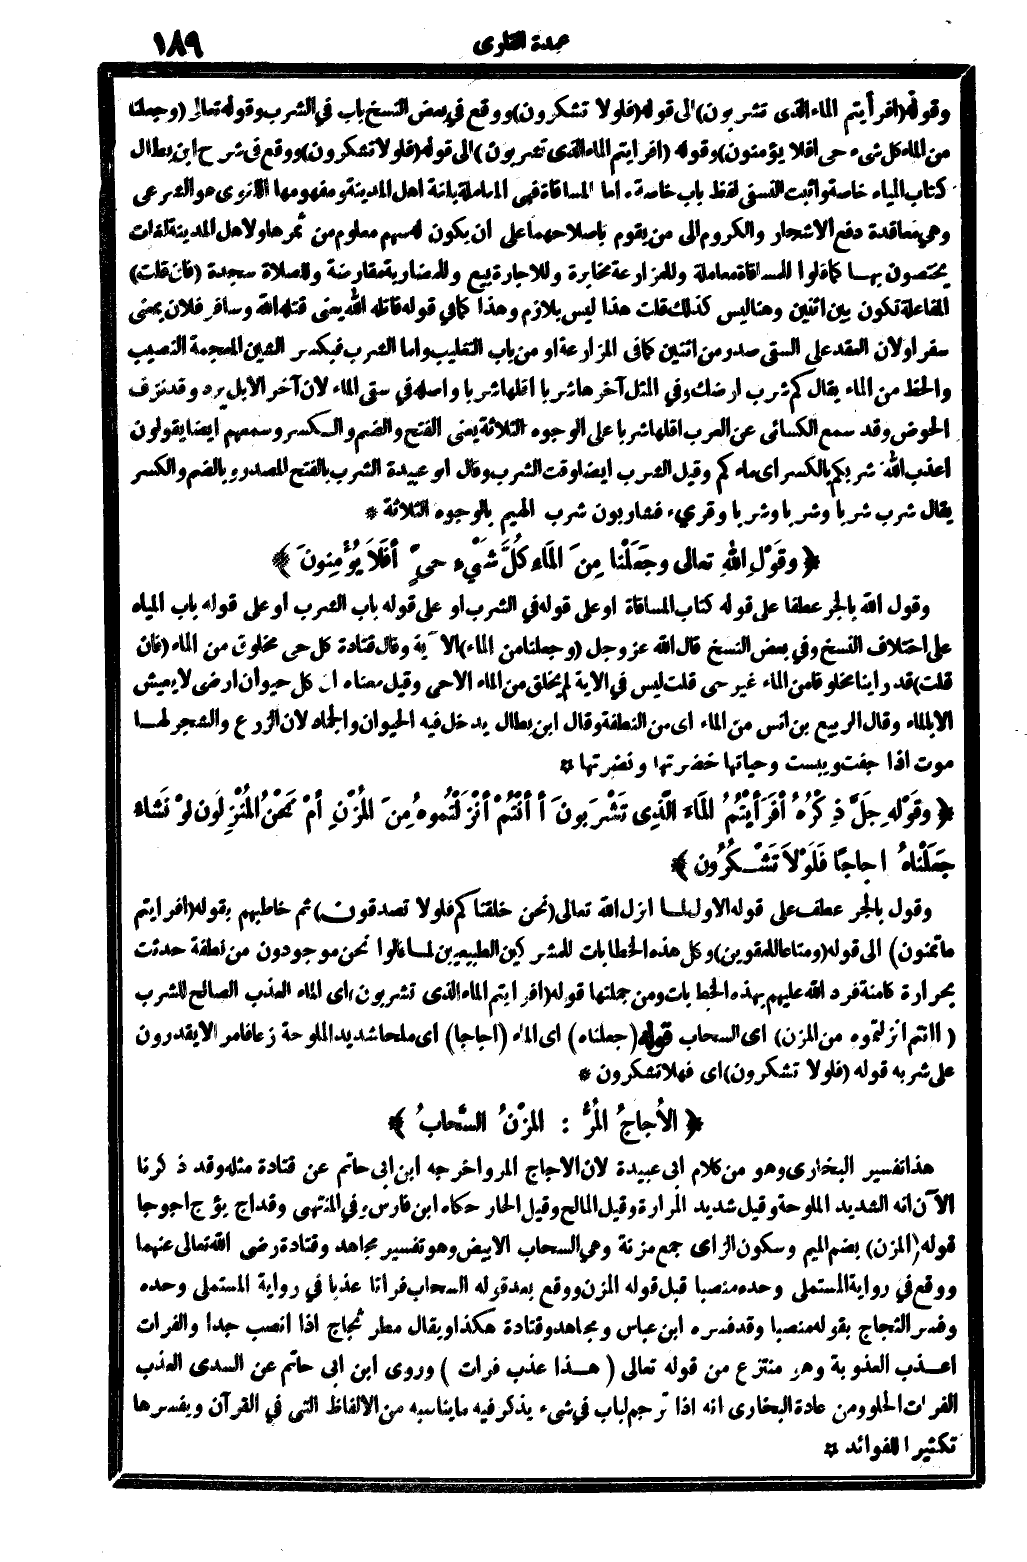 عمدة القارى ١٨٩
وقوله (افرأيتم الماء الذى تشربون) الى قوله (فلولا تشكرون) ووقع في بعض النسخ باب في الشرب وقوله تعالى (وجعلنا
من الماء كل شىء حى افلا يؤمنون) وقوله (افرايتم الماء الذى تشربون) الى قوله (فلولا تشكرون) ووقع فى شرح ابن بطال
كتاب المياه خاصة واثبت النسفى لفظ باب خاصة . اما المساقاة فهى المعاملة بلغة اهل المدينة ومفهومها اللغوى هو الشرعى
وهى معاقدة دفع الاشجار والكروم الى من يقوم باصلاحهما على ان يكون له سهم معلوم من ثمرها ولاهل المدينة لغات
يختصون بهـا كما قالوا للمساقاة معاملة وللمزارعة مخابرة وللاجارة بيع وللمضاربة مقارضة وللصلاة سجدة (فان قلت)
المفاعلة تكون بين اثنين وهنا ليس كذلك قلت هذا ليس بلازم وهذا كما في قوله قاتله الله يعنى قتله الله وسافر فلان بمعنى
سفر او لان العقد على السقى صدر من اثنين كما فى المزارعة او من باب التغليب واما الشرب فبكسر الشين المعجمة النصيب
والحظ من الماء يقال كم شرب ارضك وفي المثل آخرها شربا اقلها شربا واصله في سقى الماء لان آخر الابل يرد وقد نزف
الحوض وقد سمع الكسائى عن العرب اقلها شربا على الوجوه الثلاثة يعنى الفتح والضم والـكسر وسمعهم ايضا يقولون
اعذب الله شربكم بالكسر اى ماءكم وقيل الشرب ايضا وقت الشرب وقال ابو عبيدة الشرب بالفتح المصدر وبالضم والكسر
يقال شرب شربا وشربا وشربا وقرىء فشاربون شرب الهيم بالوجوه الثلاثة *
﴿ وقَوْلِ اللهِ تعالى وجَعَلْنا مِنَ المَاءِ كُلَّ شَيْءٍ حىٍّ أفَلاَ يُؤْمِنونَ ﴾
وقول الله بالجر عطفا على قوله كتاب المساقاة او على قوله في الشرب او على قوله باب الشرب او على قوله باب المياه
على اختلاف النسخ وفي بعض النسخ قال الله عز وجل (وجعلنا من الماء) الآية وقال قتادة كل حى مخلوق من الماء (فان
قلت) قد راينا مخلوقا من الماء غير حى قلت ليس في الاية لم يخلق من الماء الا حى وقيل معناه ان كل حيوان ارضى لا يعيش
الا بالماء وقال الربيع بن انس من الماء اى من النطفة وقال ابن بطال يدخل فيه الحيوان والجماد لان الزرع والشجر لهـا
موت اذا جفت ويبست وحياتها خضرتها ونضرتها *
﴿ وقَوْلِهِ جَلَّ ذِكْرُهُ أفَرَأيْتُمُ المَاءَ الَّذِى تَشْرَبونَ أأنْتُمْ أنْزَلْتُموهُ مِنَ المُزْنِ أمْ نَحْنُ المُنْزِلون لَوْ نَشاء
جعَلْناهُ اجاجًا فَلَوْلاَ تَشْـكُرُون ﴾
وقول بالجر عطف على قوله الاول لمـا انزل الله تعالى (نحن خلقناكم فلولا تصدقون) ثم خاطبهم بقوله (افرايتم
ما تمنون) الى قوله (ومتاعا للمقوين) وكل هذه الخطابات للمشركين الطبيعيين لما قالوا نحن موجودون من نطفة حدثت
بحرارة كامنة فرد الله عليهم بهذه الخطابات ومن جملتها قوله (افرايتم الماء الذى تشربون) اى الماء العذب الصالح للشرب
(اانتم انزلتموه من المزن) اى السحاب قوله (جعلناه) اى الماء (اجاجا) اى ملحا شديد الملوحة زعافا مرا لا يقدرون
على شربه قوله (فلولا تشكرون) اى فهلا تشكرون *
﴿ الأُجاجُ المُرُّ : المُزْنُ السَّحابُ ﴾
هذا تفسير البخارى وهو من كلام ابى عبيدة لان الاجاج المر واخرجه ابن ابى حاتم عن قتادة مثله وقد ذكرنا
الآن انه الشديد الملوحة وقيل شديد المرارة وقيل المالح وقيل الحار حكاه ابن فارس وفي المنتهى وقد اج يؤج اجوجا
قوله (المزن) بضم الميم وسكون الزاى جمع مزنة وهى السحاب الابيض وهو تفسير مجاهد وقتادة رضى الله تعالى عنهما
ووقع في رواية المستملى وحده منصبا قبل قوله المزن ووقع بعد قوله السحاب فراتا عذبا في رواية المستملى وحده
وفسر الثجاج بقوله منصبا وقد فسره ابن عباس ومجاهد وقتادة هكذا ويقال مطر ثجاج اذا انصب جدا والفرات
اعـذب العذوبة وهو منتزع من قوله تعالى (هـذا عذب فرات) وروى ابن ابى حاتم عن السدى العذب
الفرات الحلو ومن عادة البخارى انه اذا ترجم لباب في شىء يذكر فيه ما يناسبه من الالفاظ التى في القرآن ويفسرها
تكثيرا للفوائد *